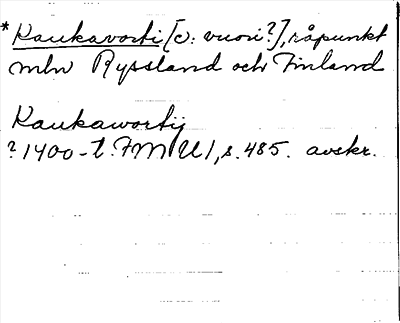 * Kaukavorti [ɔ: vuori?], råpunkt
mln Ryssland och Finland
Kaukawortij
? 1400-t. FMU 1, s. 485. avskr.